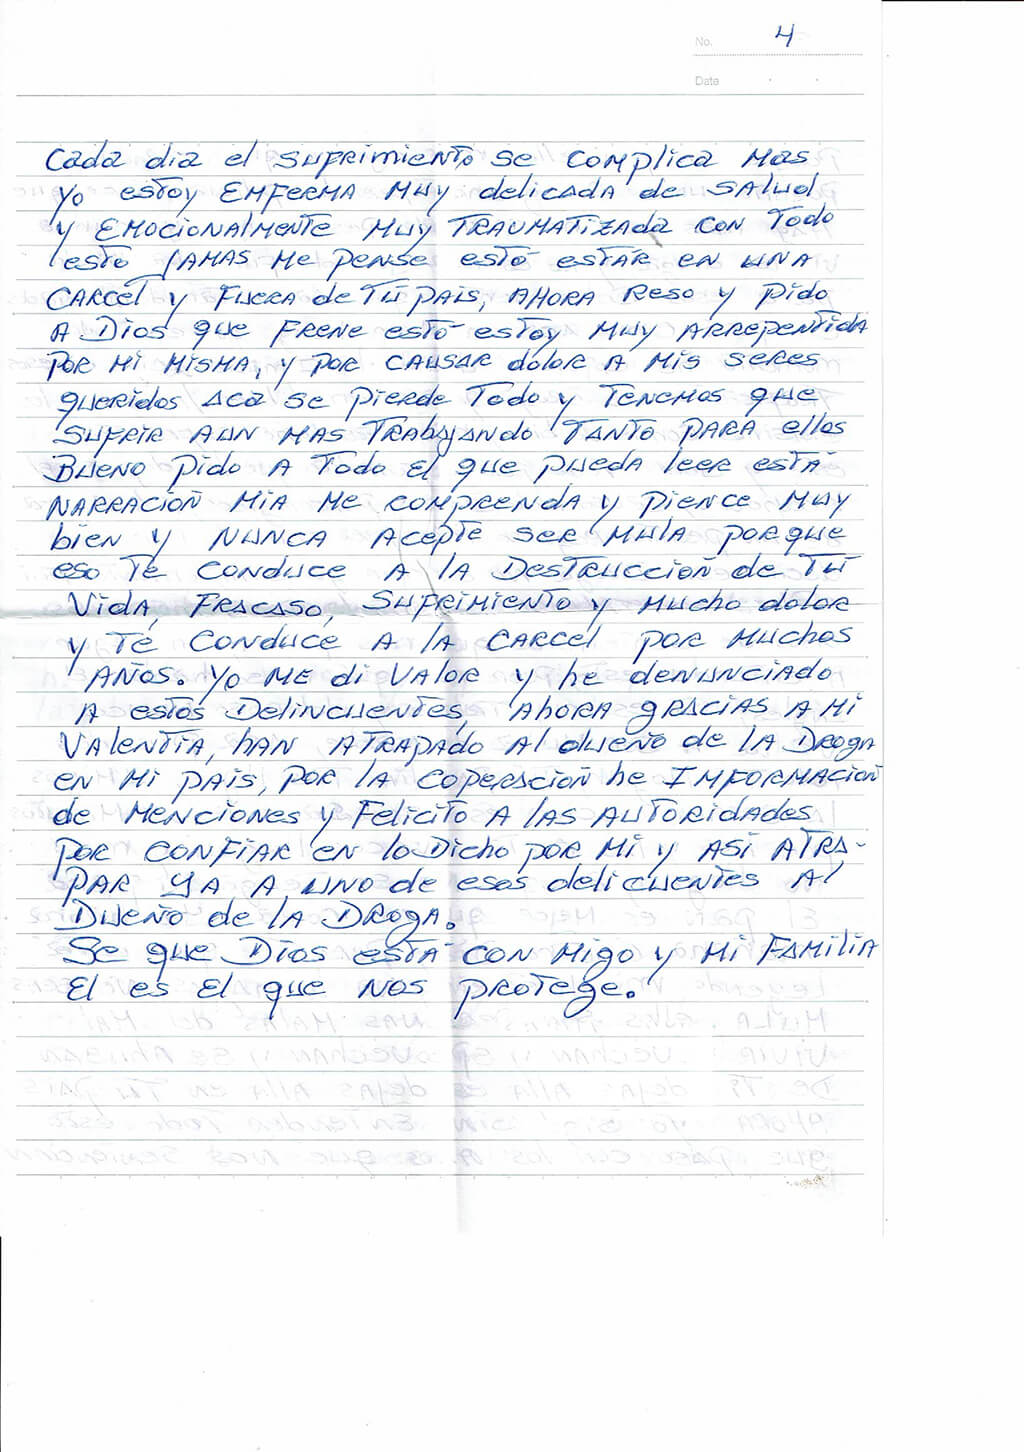 No. 4
Date
Cada dia el sufrimiento se complica mas
yo estoy EMFERMA MUY delicada de SALUD
y EMOCIONALMENTE MUY TRAUMATIZADA CON TODO
esto JAMAS Me pense esto estar en UNA
CARCEL y FUERA de TU PAIS, AHORA Reso y pido
A Dios que FRENE esto estoy MUY ARREPENTIDA
POR Mi MISMA, y POR CAUSAR dolor A Mis seres
queridos aca se pierde Todo y TENEMOS que
SUFRIR AUN MAS TRABAJANDO TANTO PARA ellos
BUENO pido A Todo El que pueda leer esta
NARRACIÓN MIA Me COMPRENDA y pience MUY
bien y NUNCA Acepte ser Mula porque
eso Te CONDUCE A la DESTRUCCIÓN de TU
Vida, FRACASO, SUFRIMIENTO y Mucho dolor
y Te CONDUCE A la CARCEL por Muchos
AÑOS. yo ME di VALOR y he denunciado
A estos DELINCUENTES, Ahora gracias A Mi
VALENTIA, han ATRAPADO Al dueño de la DROGA
en Mi PAIS, por la COPERACIÓN he INFORMACION
de MENCIONES y FELICITO A las AUTORIDADES
por CONFIAR en lo Dicho por Mi y ASI ATRA-
PAR YA A uno de esos delicuentes Al
DUEÑO de la DROGA.
Se que Dios está CON Migo y Mi FAMILIA
El es El que NOS PROTEGE.